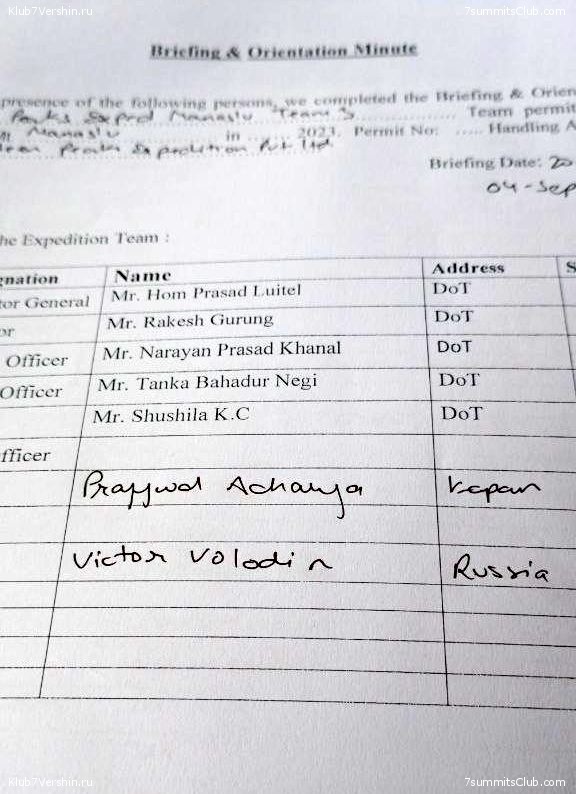 Klub7Vershin.ru 7summitsClub.com
Briefing & Orientation Minute
presence of the following persons, we completed the Briefing & Orien
Manaslu Team S Team permit
Manaslu in 2023. Permit No: Handling A
Expedition Pvt. Ltd
Briefing Date: 20
04-Sep
he Expedition Team :
gnation Name Address S
tor General Mr. Hom Prasad Luitel DoT
or Mr. Rakesh Gurung DoT
Officer Mr. Narayan Prasad Khanal DoT
Officer Mr. Tanka Bahadur Negi DoT
Mr. Shushila K.C DoT
fficer
Prajjwol Acharya Kapan
Victor Volodin Russia
Klub7Vershin.ru 7summitsClub.com